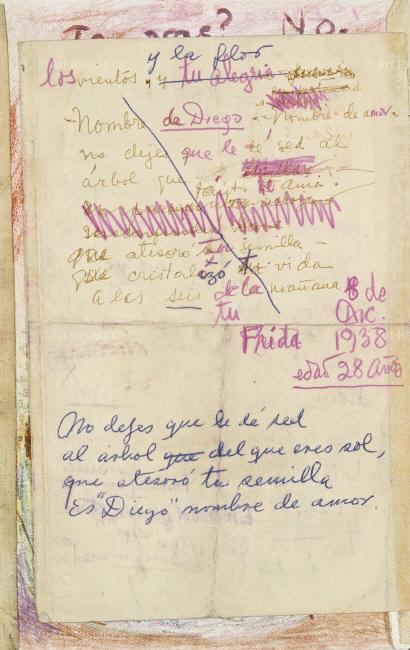 No.
y la flor
los vientos y tu alegria
Nombre de Diego - Nombre de amor -
no dejes que le dé sed al
árbol que tanto te ama
que atesoró tu semilla -
que cristalizó tu vida
a las seis de la mañana
tu 8 de
Frida Dic.
1938
edad 28 Años
No dejes que le dé sed
al arbol que del que eres sol,
que atesoró tu semilla
Es "Diego" nombre de amor.